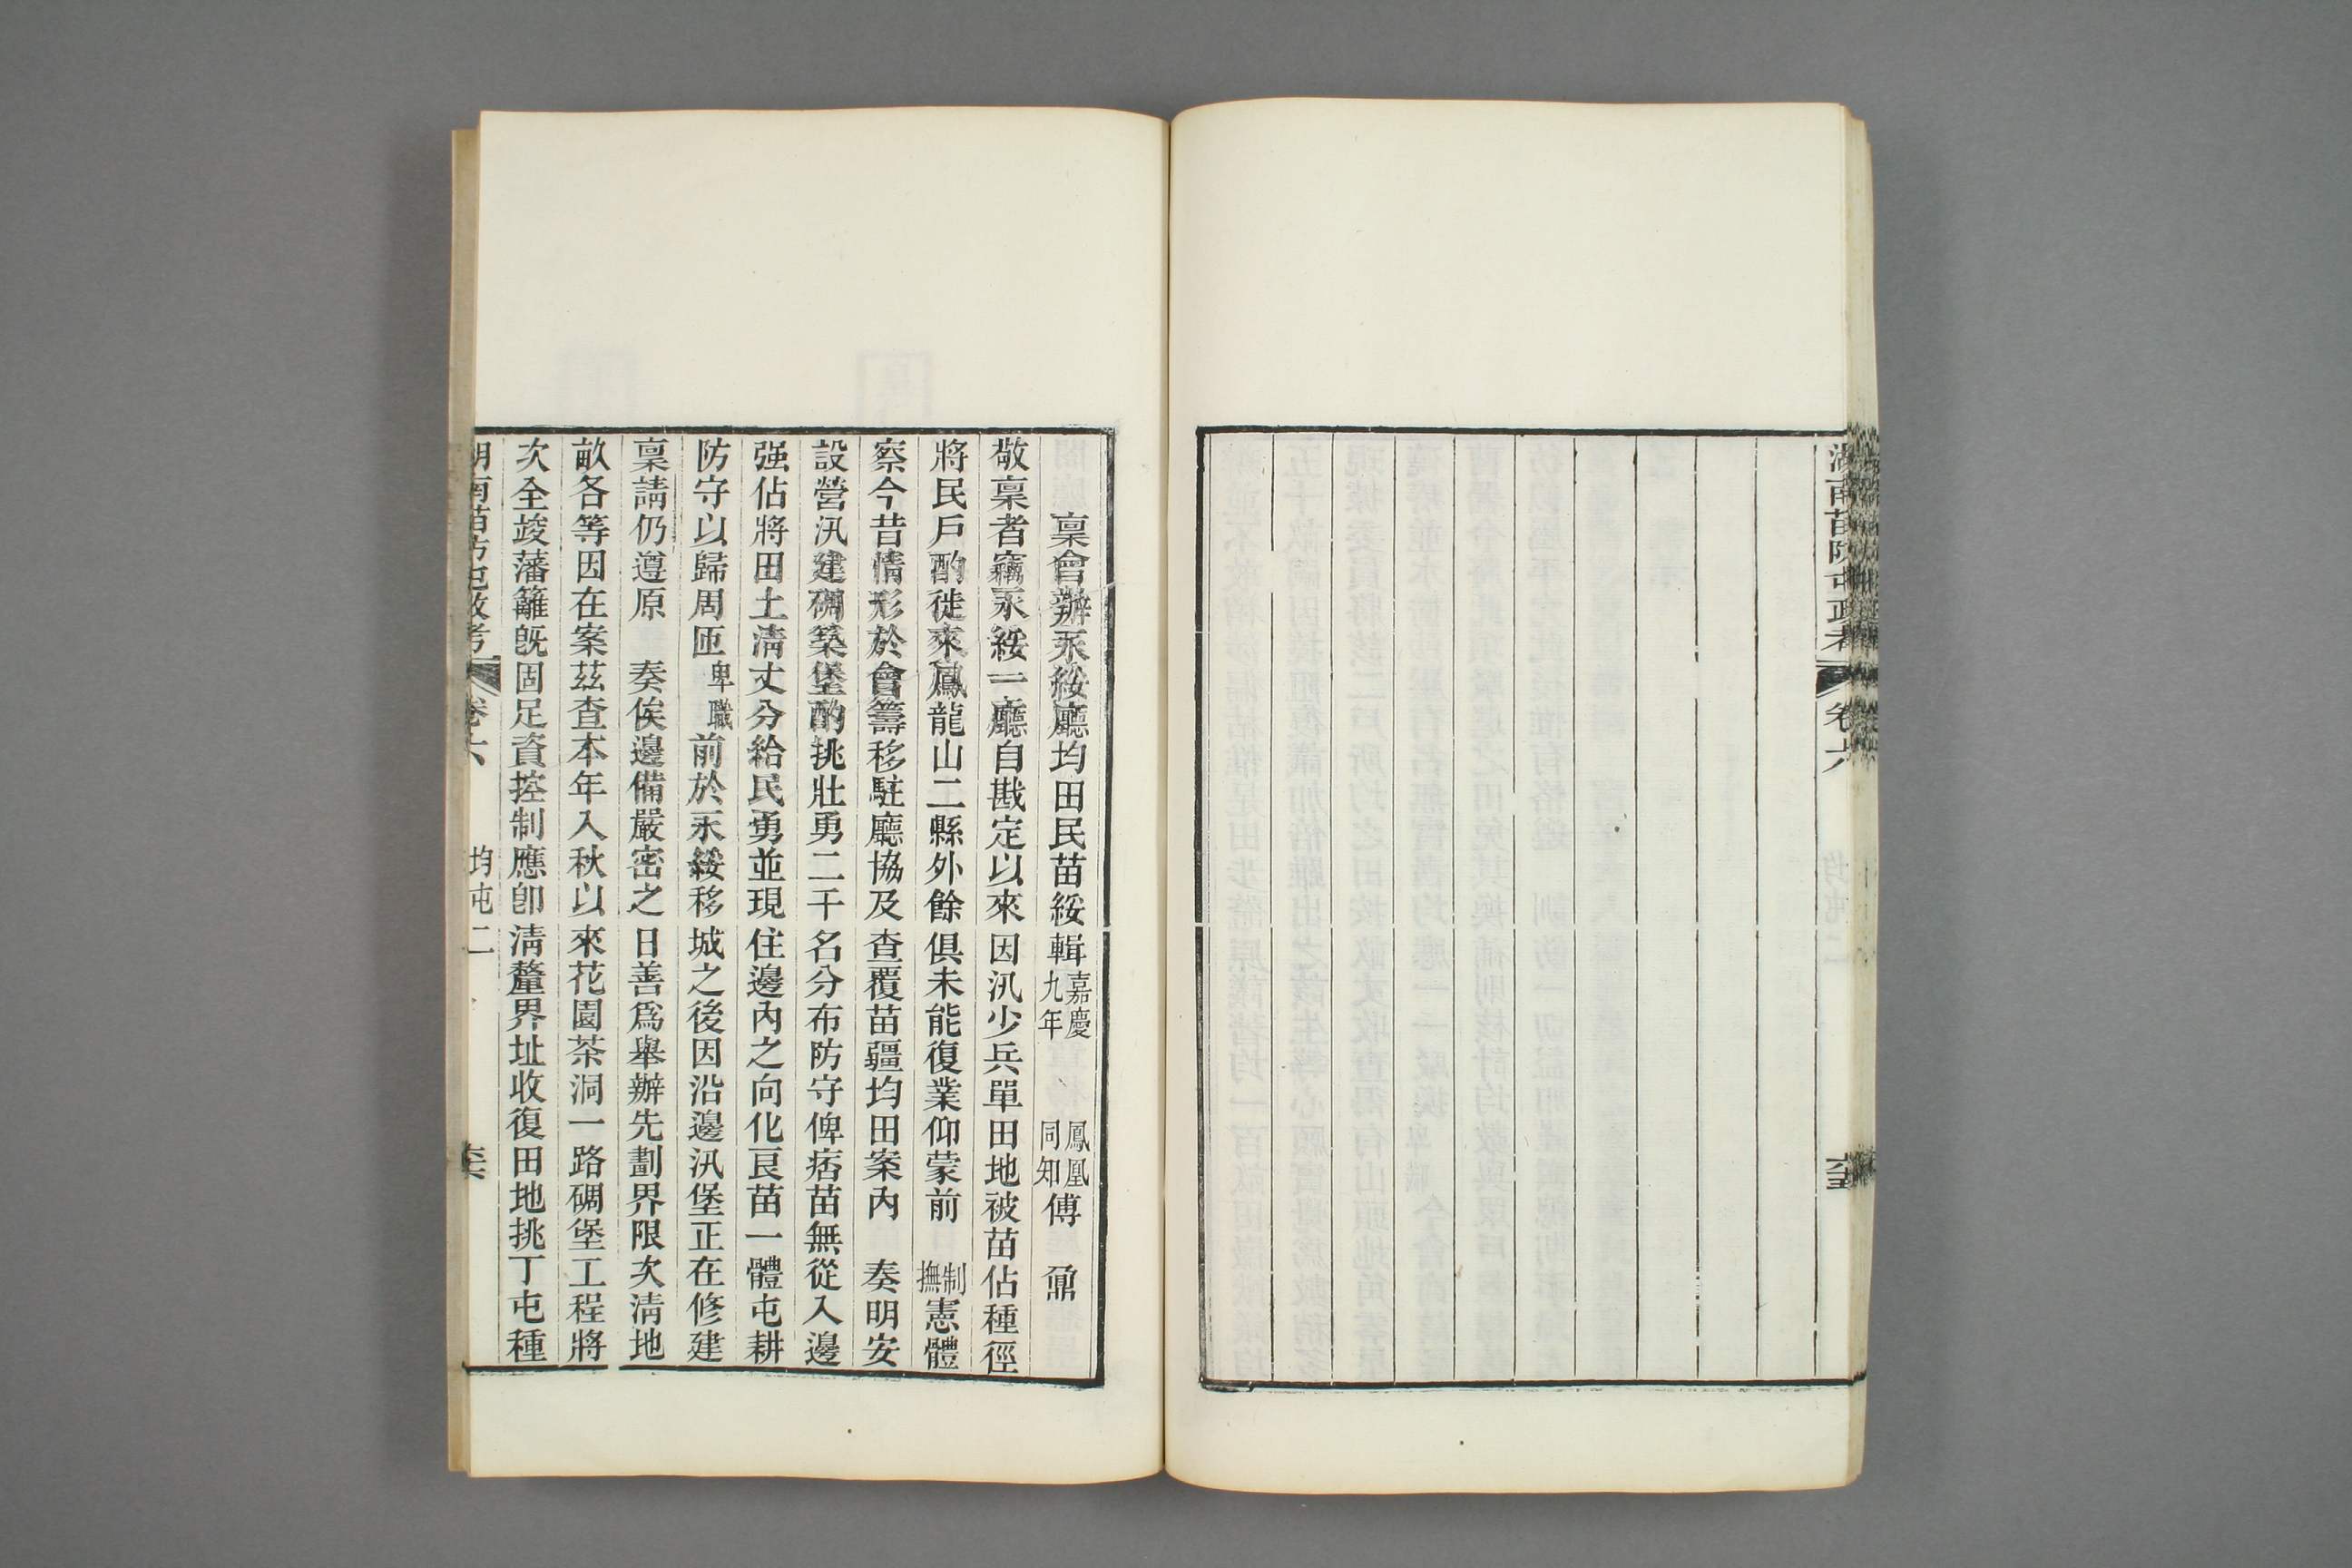 湖南苗防屯政考 卷六 均屯二
稟會辦永綏廳均田民苗綏輯嘉慶九年 鳳凰同知傅 鼐
敬稟者竊永綏一廳自戡定以來因汛少兵單田地被苗佔種徑
將民戶酌徙來鳳龍山二縣外餘俱未能復業仰蒙前 制撫憲體
察今昔情形於會籌移駐廳協及查覆苗疆均田案內 奏明安
設營汛建碉築堡酌挑壯勇二千名分布防守俾痞苗無從入邊
强佔將田土清丈分給民勇並現住邊內之向化良苗一體屯耕
防守以歸周匝卑職前於永綏移城之後因沿邊汛堡正在修建
稟請仍遵原 奏俟邊備嚴密之日善為舉辦先劃界限次清地
畝各等因在案茲查本年入秋以來花園茶洞一路碉堡工程將
次全竣藩籬既固足資控制應卽清釐界址收復田地挑丁屯種
湖南苗防屯政考 卷六 均屯二